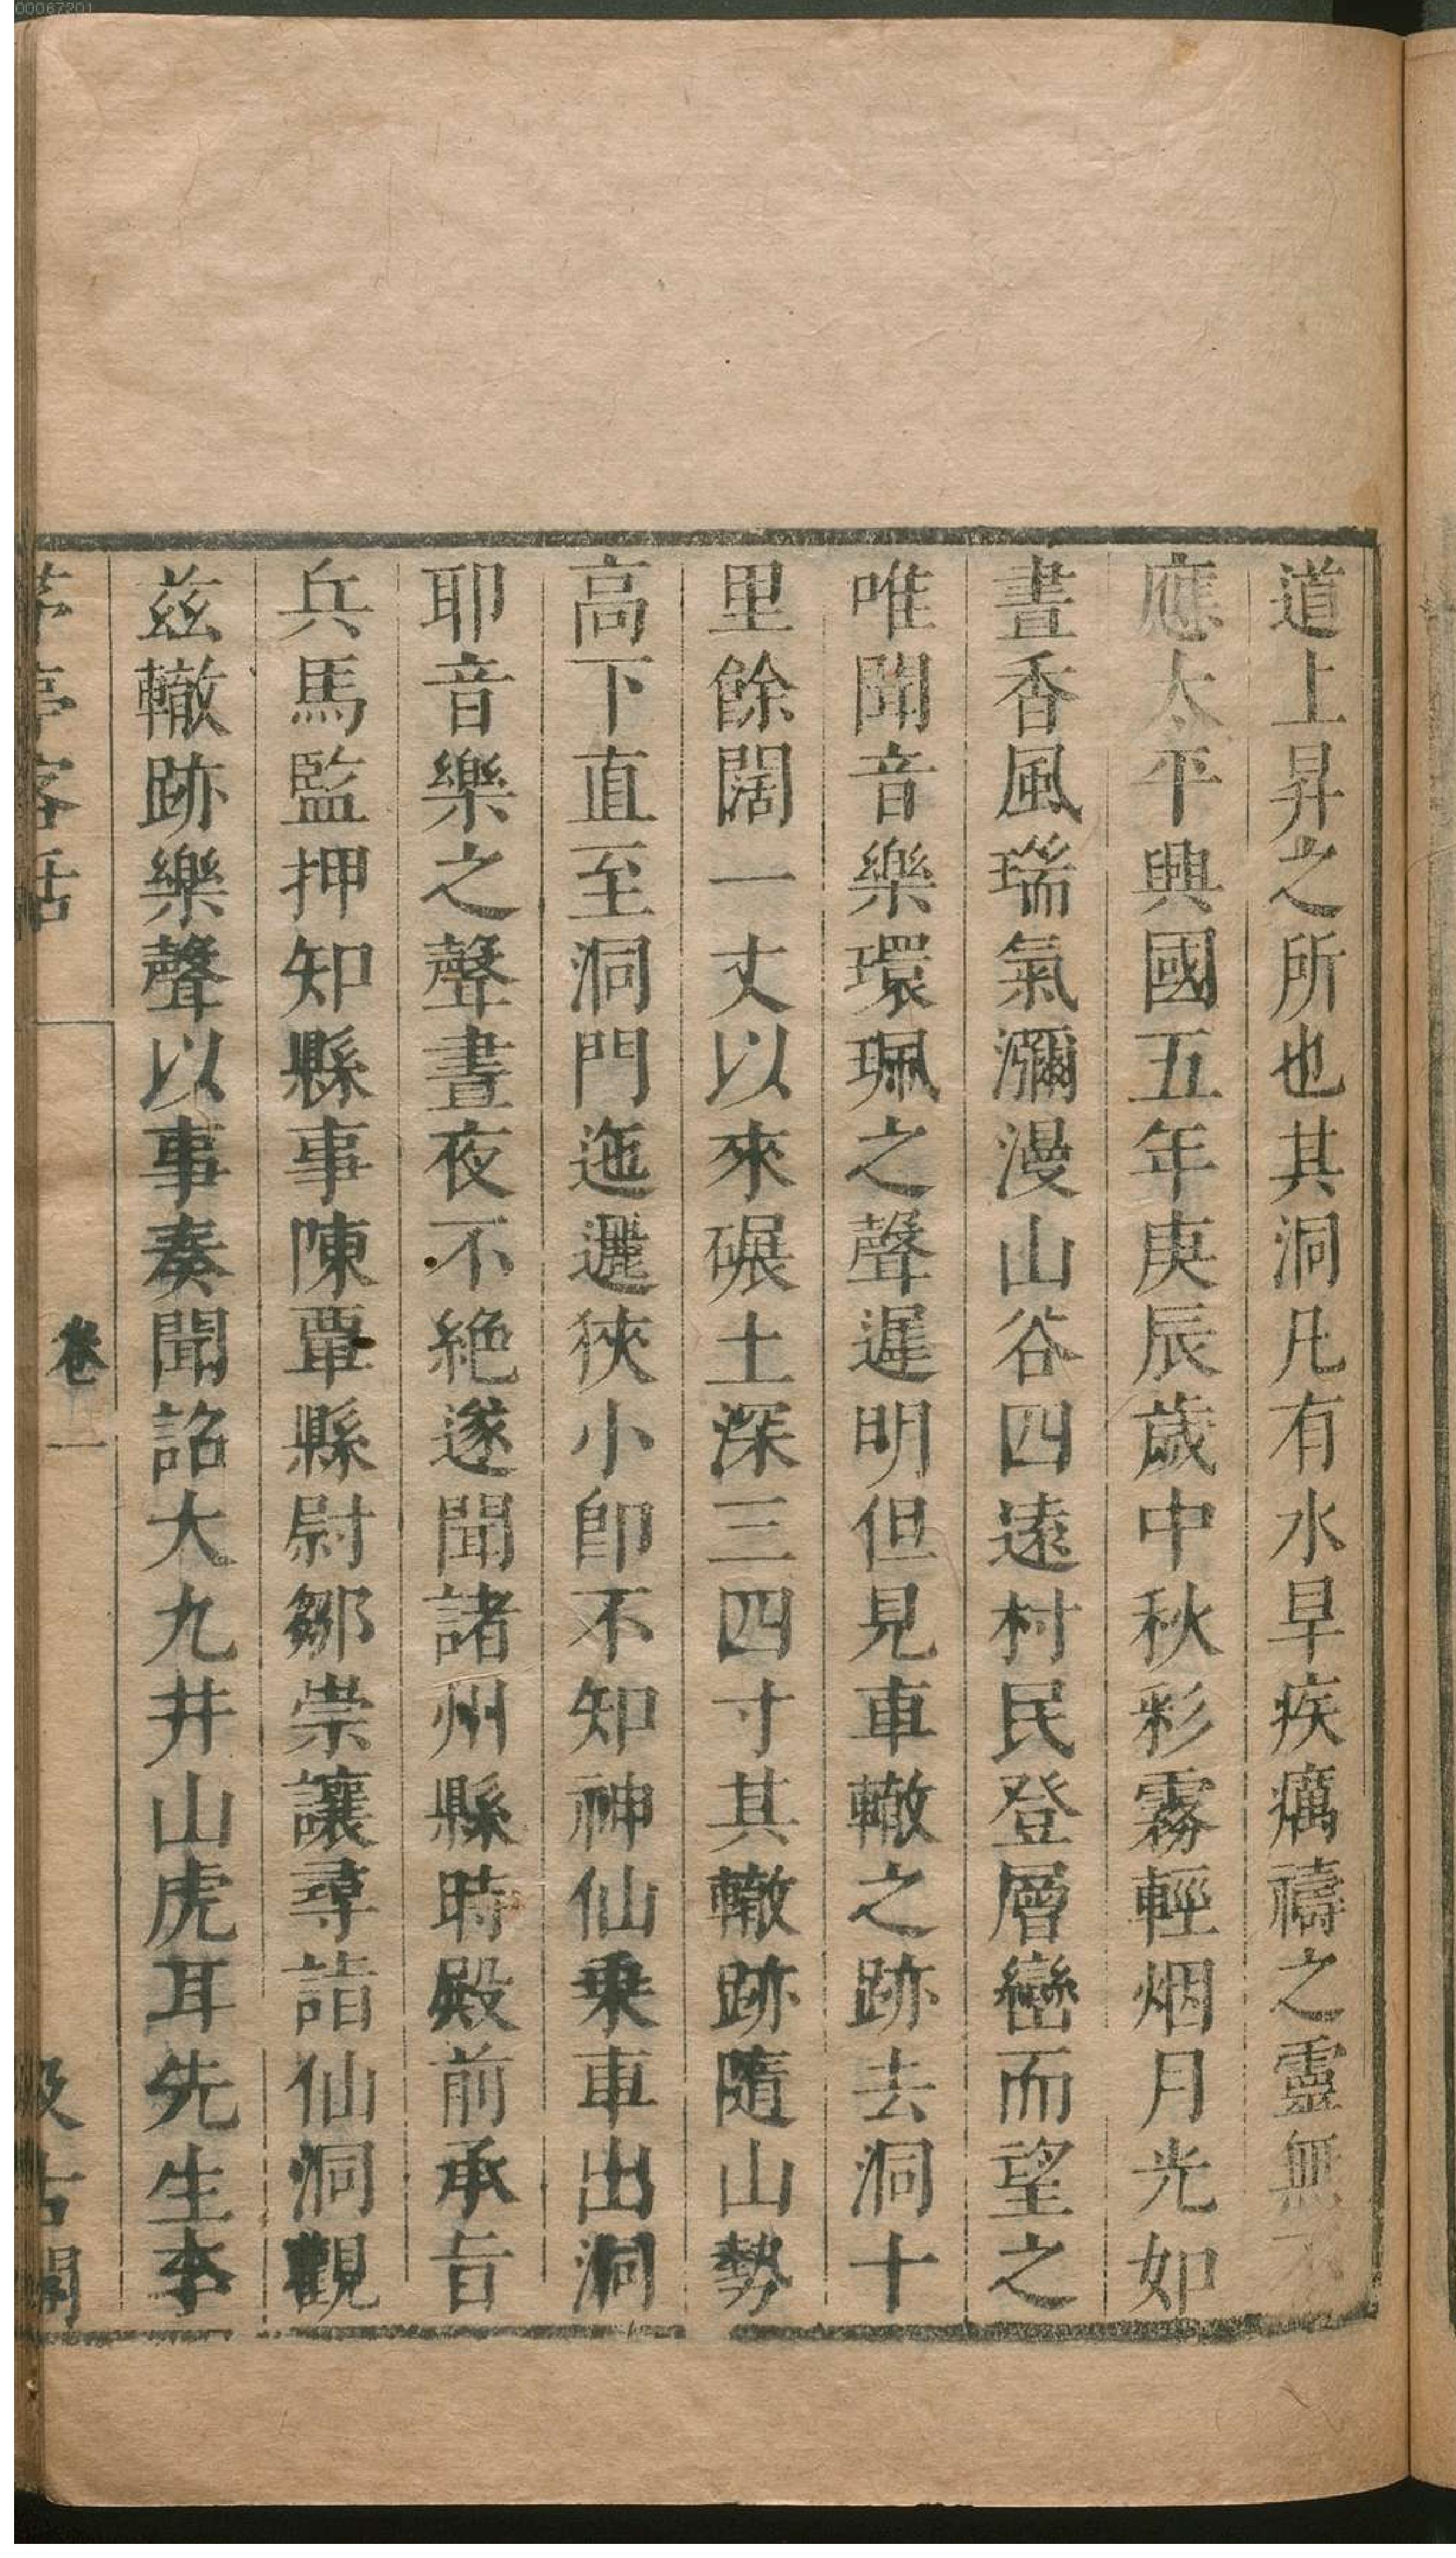 道上昇之所也其洞凡有水旱疾癘禱之靈無不
應太平興國五年庚辰歲中秋彩霧輕烟月光如
晝香風瑞氣瀰漫山谷四遠村民登層巒而望之
唯聞音樂環珮之聲遲明但見車轍之跡去洞十
里餘闊一丈以來碾土深三四寸其轍跡隨山勢
高下直至洞門迤邐狹小卽不知神仙乗車出洞
耶音樂之聲晝夜不絶遂聞諸州縣時殿前承旨
兵馬監押知縣事陳覃縣尉鄒崇讓尋詣仙洞觀
茲轍跡樂聲以事奏聞詔大九井山虎耳先生李
茅亭客話
卷一
汲古閣
00067201